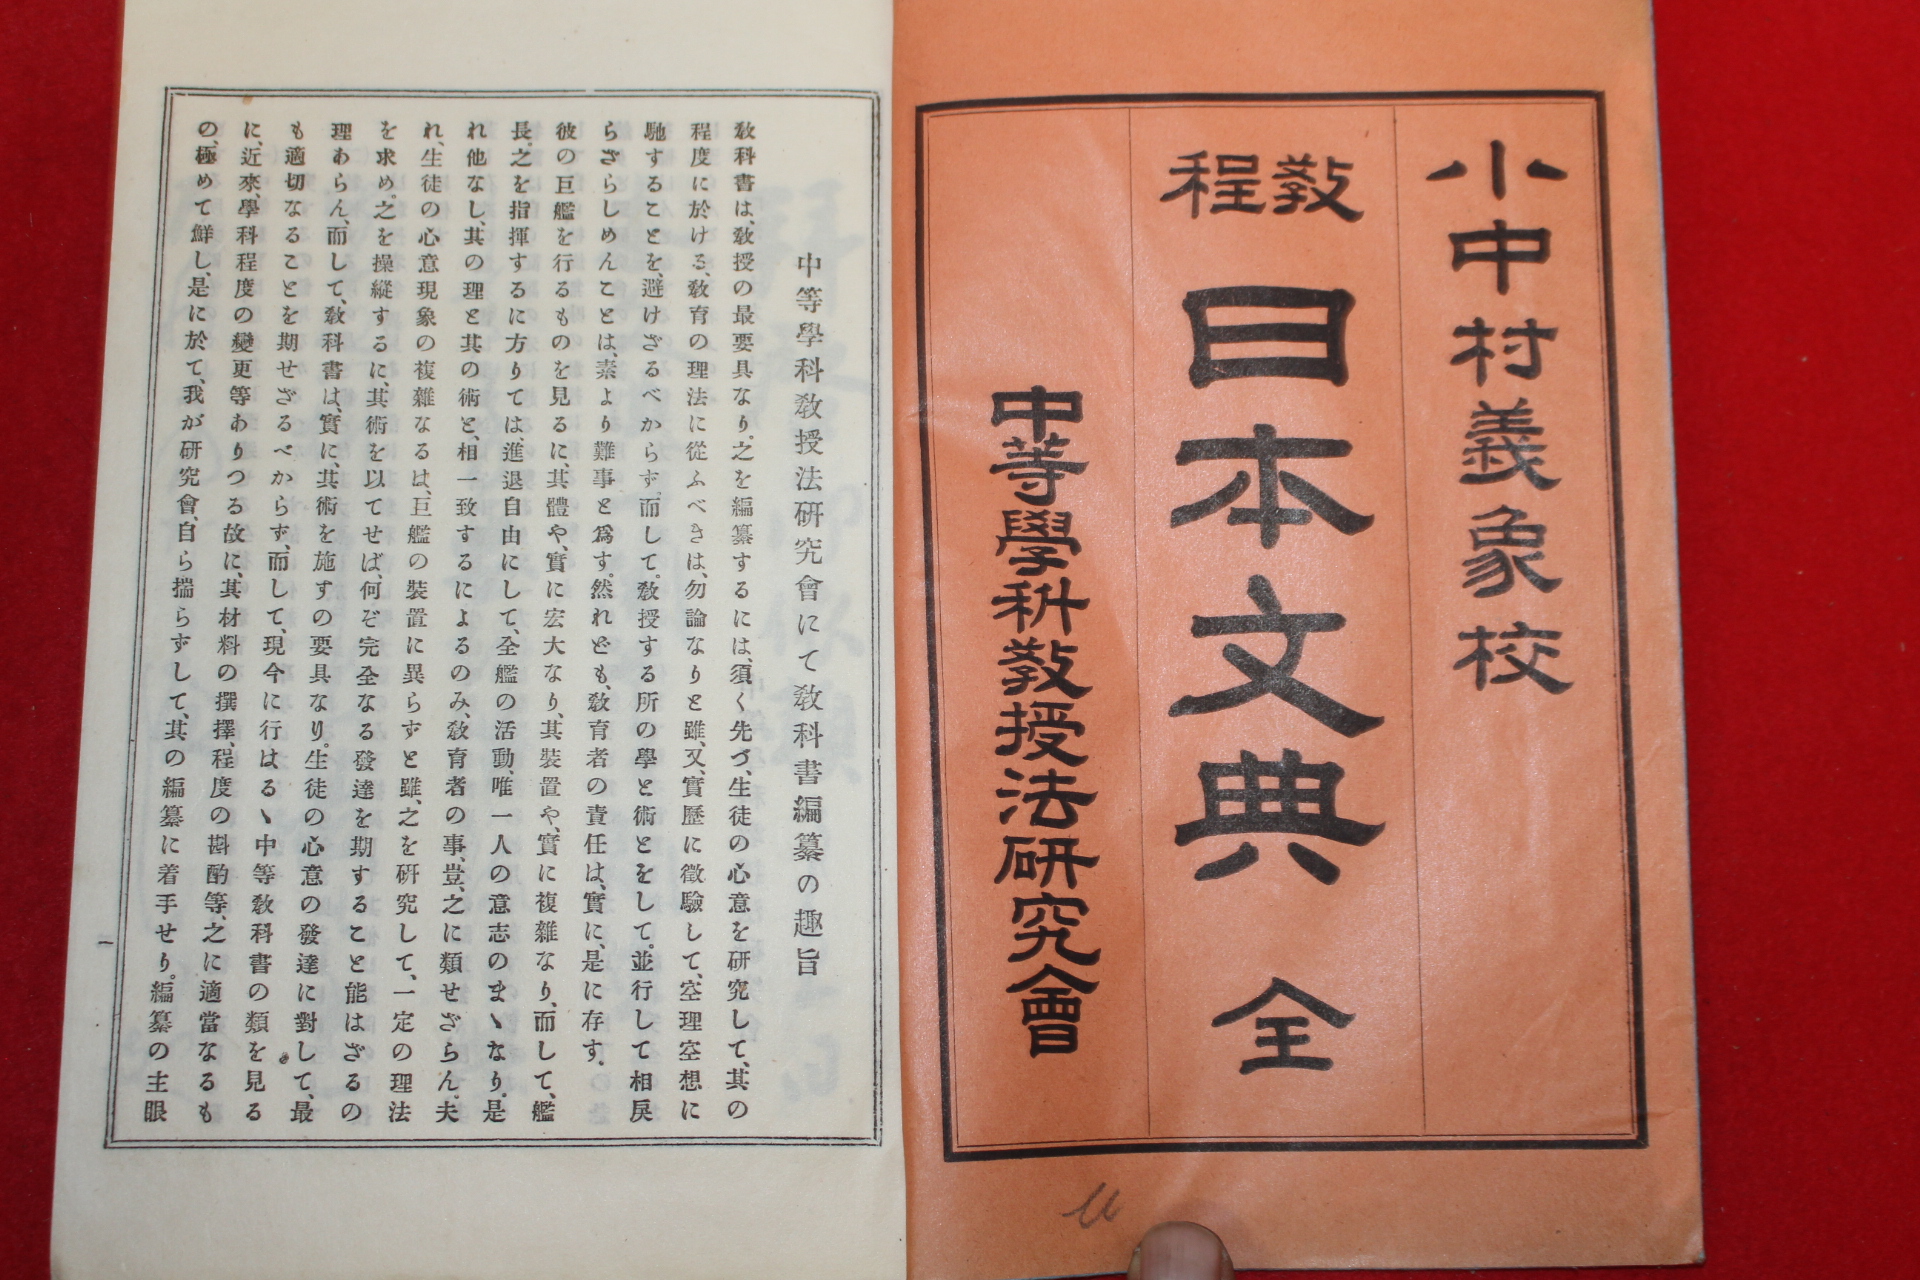 小中村義象校
教程
日本文典 全
中等學科教授法研究會
中等學科敎授法研究會にて敎科書編纂の趣旨
敎科書は、敎授の最要具なり。之を編纂するには、須く先づ、生徒の心意を研究して、其の
程度に於ける、敎育の理法に從ふべきは、勿論なりと雖、又、實歷に徵驗して、空理空想に
馳することを、避けざるべからず。而して、敎授する所の學と術とをして、並行して相戾
らざらしめんことは、素より難事と爲す。然れども、敎育者の責任は、實に、是に存す。
彼の巨艦を行るものを見るに、其體や、實に宏大なり、其裝置や、實に複雜なり、而して、艦
長、之を指揮するに方りては、進退自由にして、全艦の活動、唯一人の意志のまゝなり。是
れ他なし、其の理と其の術と、相一致するによるのみ、敎育者の事、豈、之に類せざらん。夫
れ、生徒の心意現象の複雜なるは、巨艦の裝置に異らずと雖、之を硏究して、一定の理法
を求め、之を操縱するに、其術を以てせば、何ぞ完全なる發達を期すること能はざるの
理あらん、而して、敎科書は、實に、其術を施すの要具なり。生徒の心意の發達に對して、最
も適切なることを期せざるべからず、而して、現今に行はるゝ中等敎科書の類を見る
に、近來、學科程度の變更等ありつる故に、其材料の撰擇、程度の斟酌等、之に適當なるも
の、極めて鮮し、是に於て、我が硏究會、自ら揣らずして、其の編纂に着手せり。編纂の主眼
一